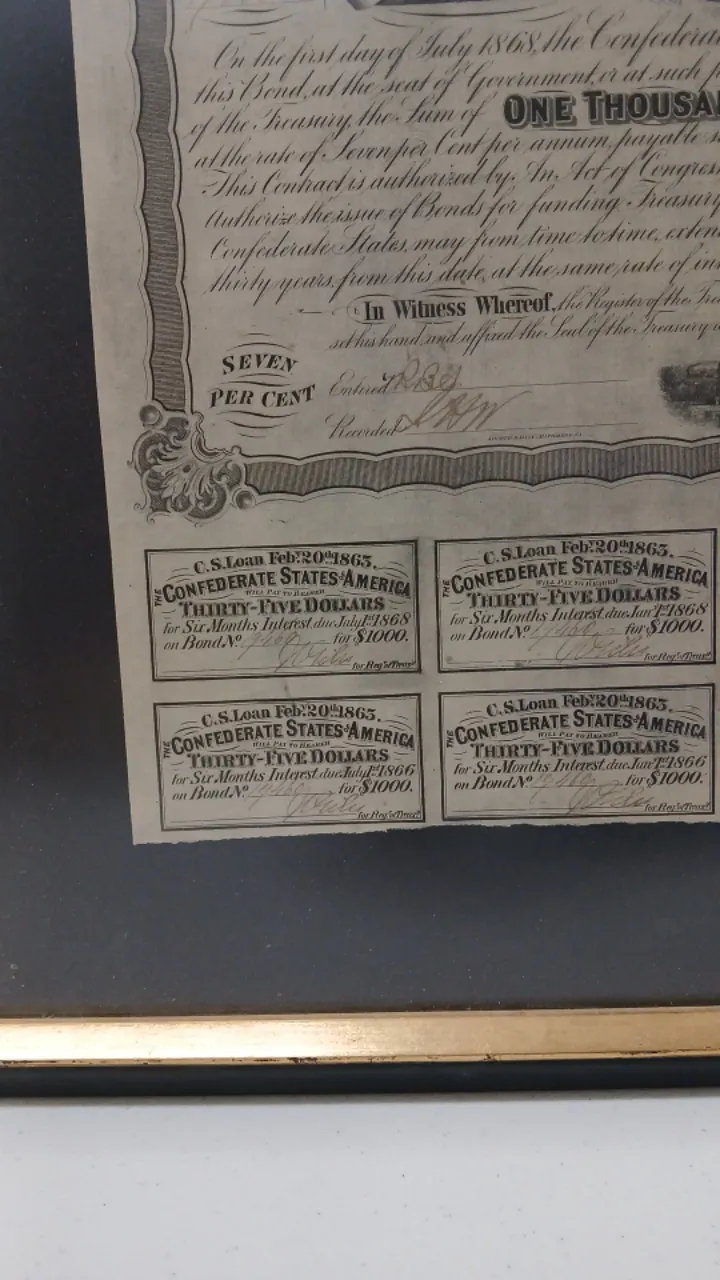 On the first day of July 1868, the Confedera
this Bond, at the seat of Government, or at such p
of the Treasury, the Sum of ONE THOUSA
at the rate of Seven per Cent per annum, payable s
This Contract is authorized by An Act of Congres
Authorize the issue of Bonds for funding Treasury
Confederate States, may from time to time, exten
thirty years, from this date, at the same rate of in
In Witness Whereof, the Register of the Tre
set his hand and affixed the Seal of the Treasury
SEVEN
PER CENT
Entered
Recorded
C.S. Loan Feby. 20th 1863.
THE CONFEDERATE STATES OF AMERICA
WILL PAY TO BEARER
THIRTY-FIVE DOLLARS
for Six Months Interest due July 1st 1868
on Bond No. for $1000.
for Regr. of Treasy.
C.S. Loan Feby. 20th 1863.
THE CONFEDERATE STATES OF AMERICA
WILL PAY TO BEARER
THIRTY-FIVE DOLLARS
for Six Months Interest due Jany. 1st 1868
on Bond No. for $1000.
for Regr. of Treasy.
C.S. Loan Feby. 20th 1863.
THE CONFEDERATE STATES OF AMERICA
WILL PAY TO BEARER
THIRTY-FIVE DOLLARS
for Six Months Interest due July 1st 1866
on Bond No. for $1000.
for Regr. of Treasy.
C.S. Loan Feby. 20th 1863.
THE CONFEDERATE STATES OF AMERICA
WILL PAY TO BEARER
THIRTY-FIVE DOLLARS
for Six Months Interest due Jany. 1st 1866
on Bond No. for $1000.
for Regr. of Treasy.